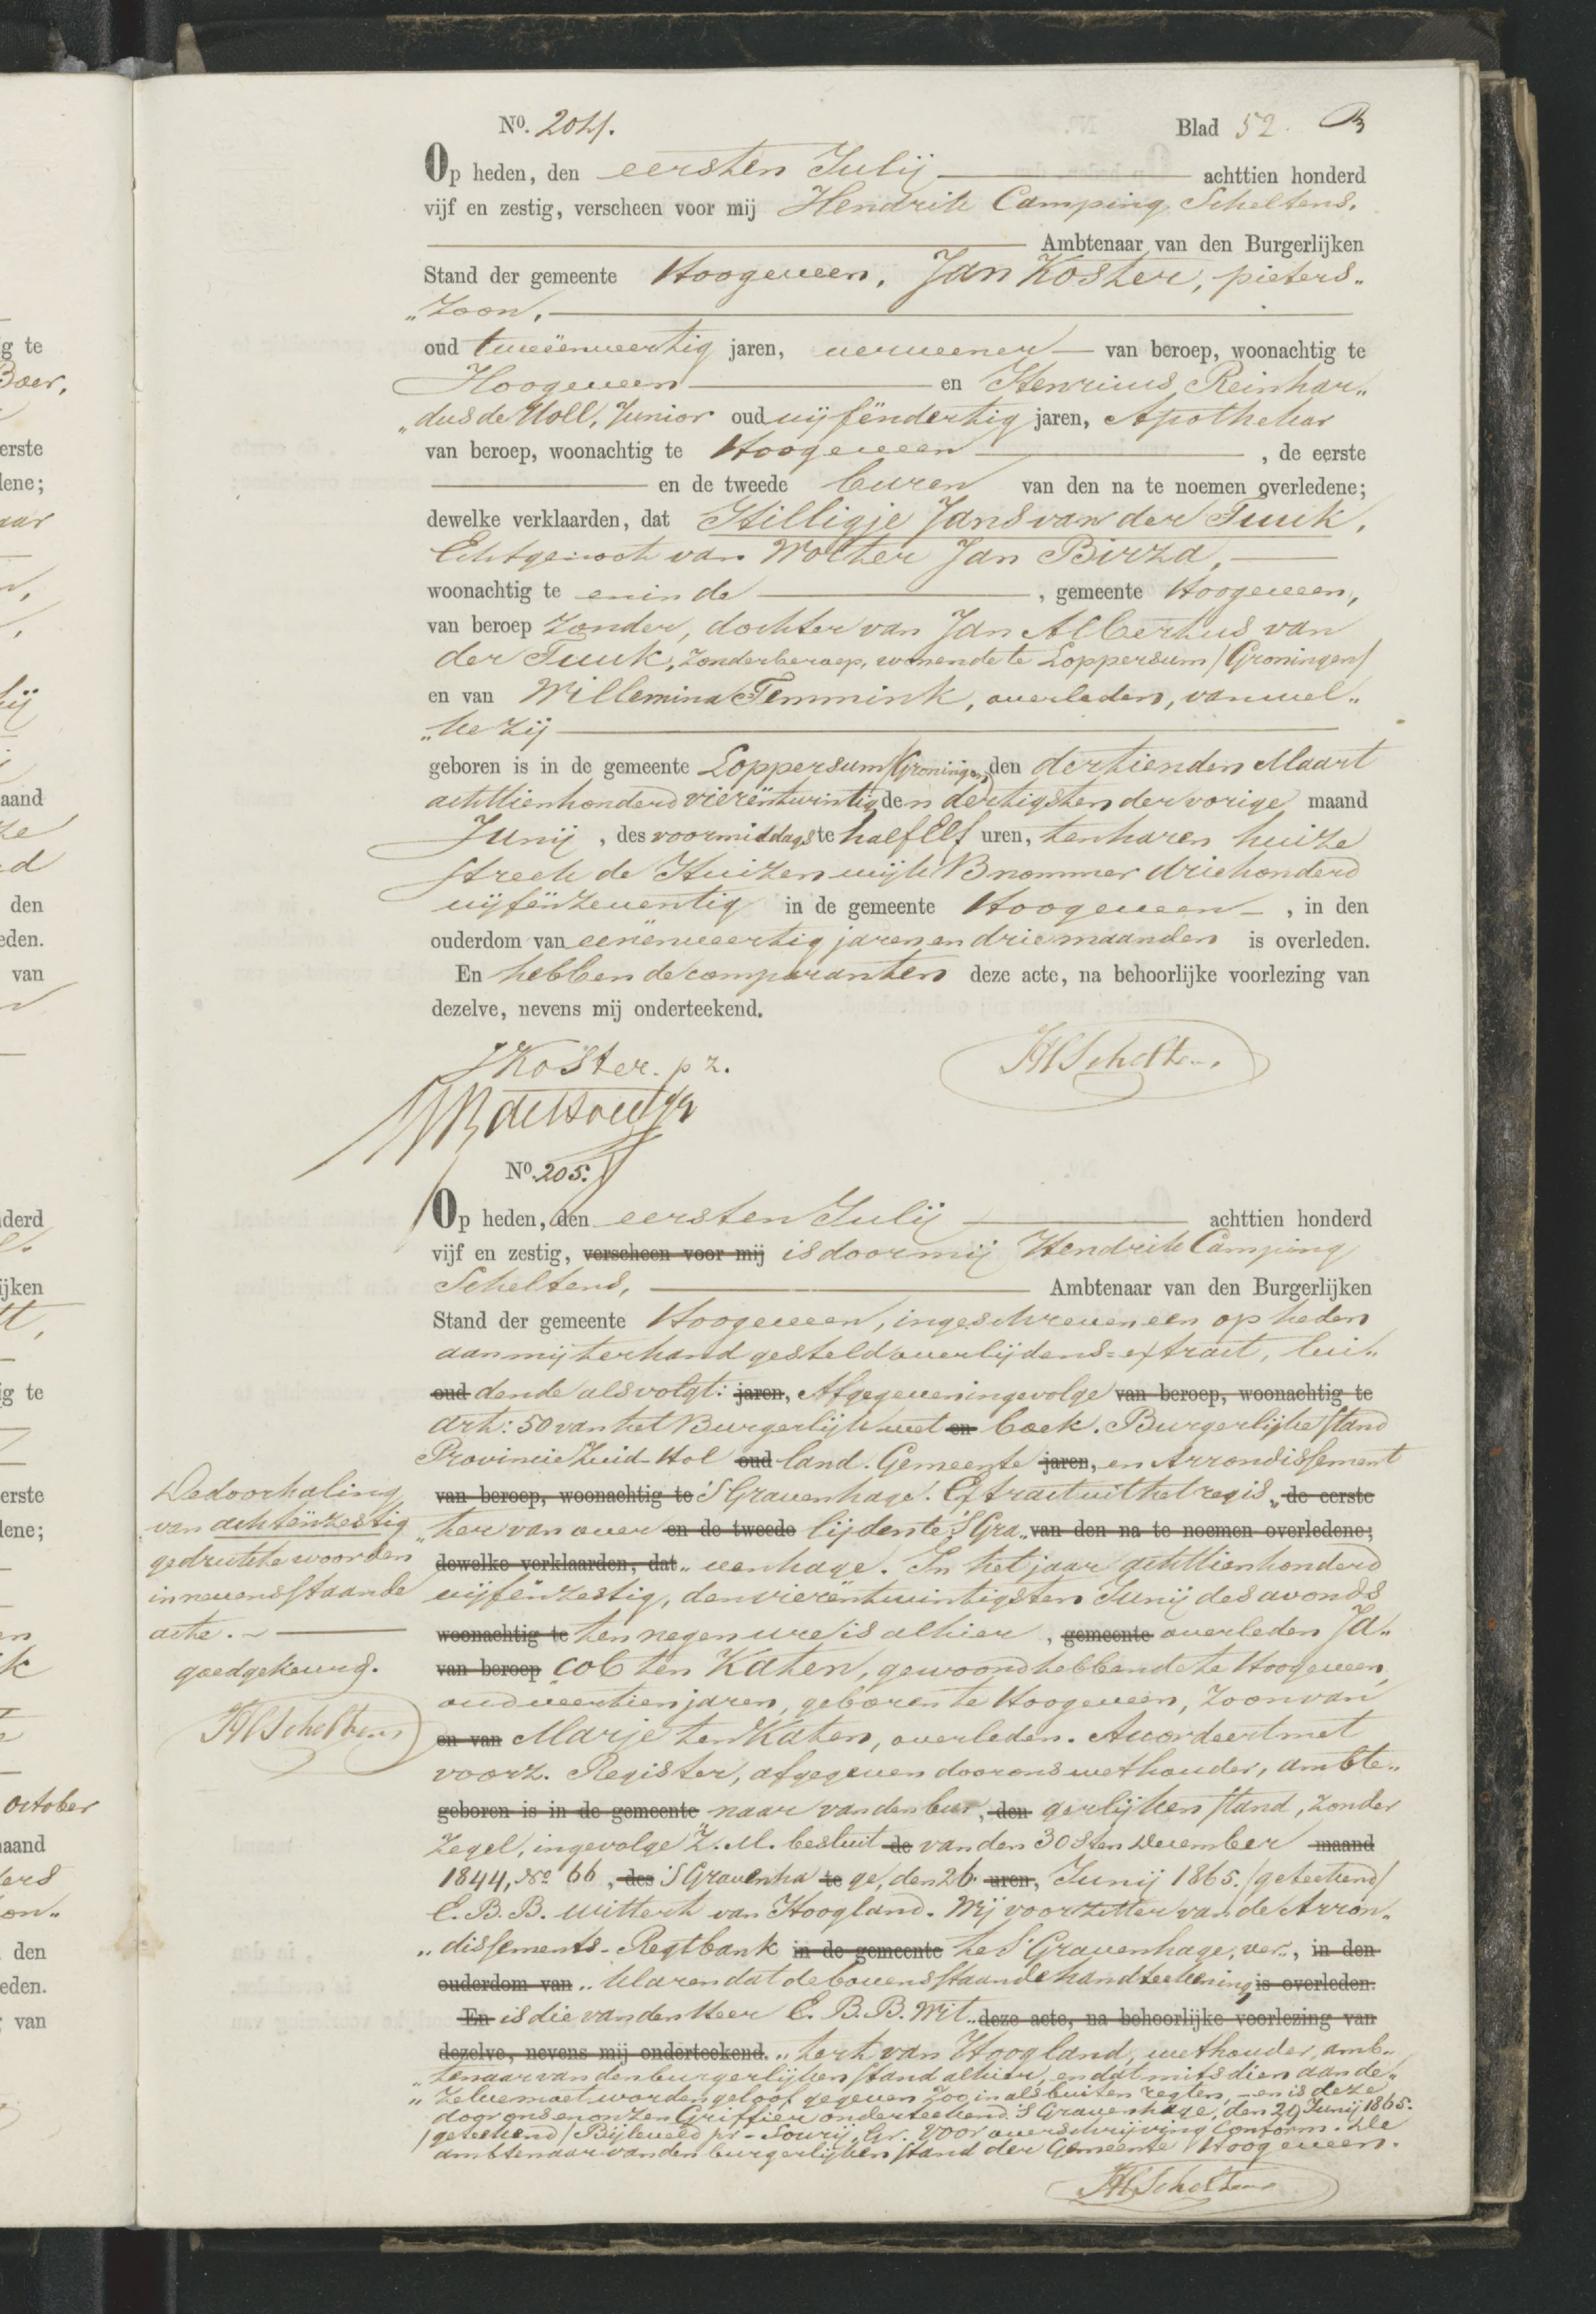 No. 204. Blad 52. B
Op heden, den eersten Julij achttien honderd
vijf en zestig, verscheen voor mij Hendrik Camping Scheltens.
Ambtenaar van den Burgerlijken
Stand der gemeente Hoogeveen, Jan Koster, pieters„
„zoon,
oud tweeënveertig jaren, vervener van beroep, woonachtig te
Hoogeveen en Henricus Reinhar„
„dus de Holl, Junior oud vijfëndertig jaren, Apotheker
van beroep, woonachtig te Hoogeveen , de eerste
en de tweede buren van den na te noemen overledene;
dewelke verklaarden, dat Hilligje Jans van der Tuuk,
Echtgenoot van Wolter Jan Birza,
woonachtig te en in de , gemeente Hoogeveen,
van beroep zonder, dochter van Jan Albertus van
der Tuuk, zonder beroep, wonende te Loppersum /Groningen/
en van Willemina Temmink, overleden, van wel„
„ke zij
geboren is in de gemeente Loppersum /Groningen/ den dertienden Maart
achttienhonderd vierëntwintig den dertigsten der vorige maand
Junij , des voormiddags te half Elf uren, ten haren huize
streek de Huizen wijk B nommer driehonderd
vijfënzeventig in de gemeente Hoogeveen , in den
ouderdom van eenënveertig jaren en drie maanden is overleden.
En hebben de comparanten deze acte, na behoorlijke voorlezing van
dezelve, nevens mij onderteekend.
JKoster. pz.
HCScheltens.
No. 205.
Op heden, den eersten Julij achttien honderd
vijf en zestig, verscheen voor mij is door mij Hendrik Camping
Scheltens, Ambtenaar van den Burgerlijken
Stand der gemeente Hoogeveen, ingeschreven een op heden
aan mij ter hand gesteld overlijdens=extract, lui„
oud dende als volgt: jaren, Afgegeven ingevolge van beroep, woonachtig te
art: 50 van het Burgerlijk wet en boek. Burgerlijke stand
Provincie Zuid-Hol oud land. Gemeente jaren, en Arrondissement
van beroep, woonachtig te 'S Gravenhage. Extract uit het regis„ de eerste
„ter van over en de tweede lijden te 'S Gra„ van den na te noemen overledene;
dewelke verklaarden, dat „venhage. In het jaar achttienhonderd
vijfënzestig, den vierëntwintigsten Junij des avonds
woonachtig te ten negen ure is alhier , gemeente overleden Ja„
van beroep cob ten Katen, gewoond hebbende te Hoogeveen,
oud veertien jaren, geboren te Hoogeveen, zoon van
en van Marje ten Katen, overleden. Accordeert met
voorz. Register, afgegeven door ons wethouder, ambte„
geboren is in de gemeente naar van den bur , den gerlijken stand, zonder
zegel, ingevolge Z. M. besluit de van den 30sten December maand
1844, No 66 , des 'S Gravenha te ge, den 26 uren, Junij 1865. /geteekend/
E. B. B. Wittert van Hoogland. Wij voorzitter van de Arron„
„dissements-Regtbank in de gemeente te 'S Gravenhage, ver„ , in den
ouderdom van „klaren dat de bovenstaande handteekening is overleden.
En is die van den Heer E. B. B. Wit„ deze acte, na behoorlijke voorlezing van
dezelve, nevens mij onderteekend. „tert van Hoogland, wethouder, amb„
„tenaar van den burgerlijken stand alhier, en dat mitsdien aan de„
„zelve moet worden geloof gegeven zoo in als buiten regten, en is deze
door ons en onzen Griffier onderteekend. 'S Gravenhage, den 29 Junij 1865.
/geteekend/ Bijleveld pr. Gr. Voor overschrijving conform. De
ambtenaar van den burgerlijken stand der Gemeente Hoogeveen.
HCScheltens
De doorhaling
van achtënzestig
gedrukte woorden
in nevensstaande
acte.
goedgekeurd.
HCScheltens
g te
Boer,
erste
lene;
aand
den
eden.
van
derd
ijken
ig te
erste
lene;
October
aand
den
eden.
van